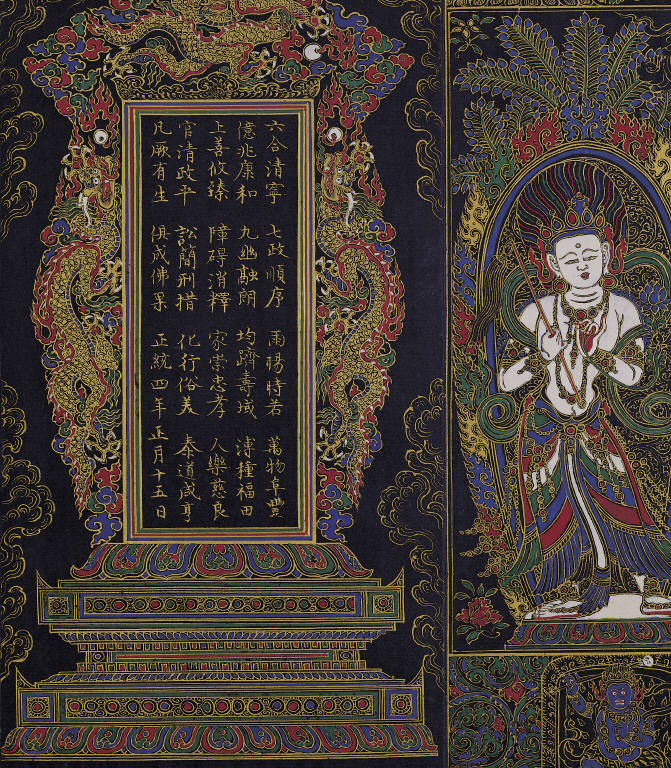 六合清寧 七政順序 雨暘時若 萬物阜豐
億兆康和 九幽融朗 均躋壽域 溥種福田
上善攸臻 障碍消釋 家崇忠孝 人樂慈良
官清政平 訟簡刑措 化行俗美 泰道咸亨
凡厥有生 俱成佛果 正統四年正月十五日